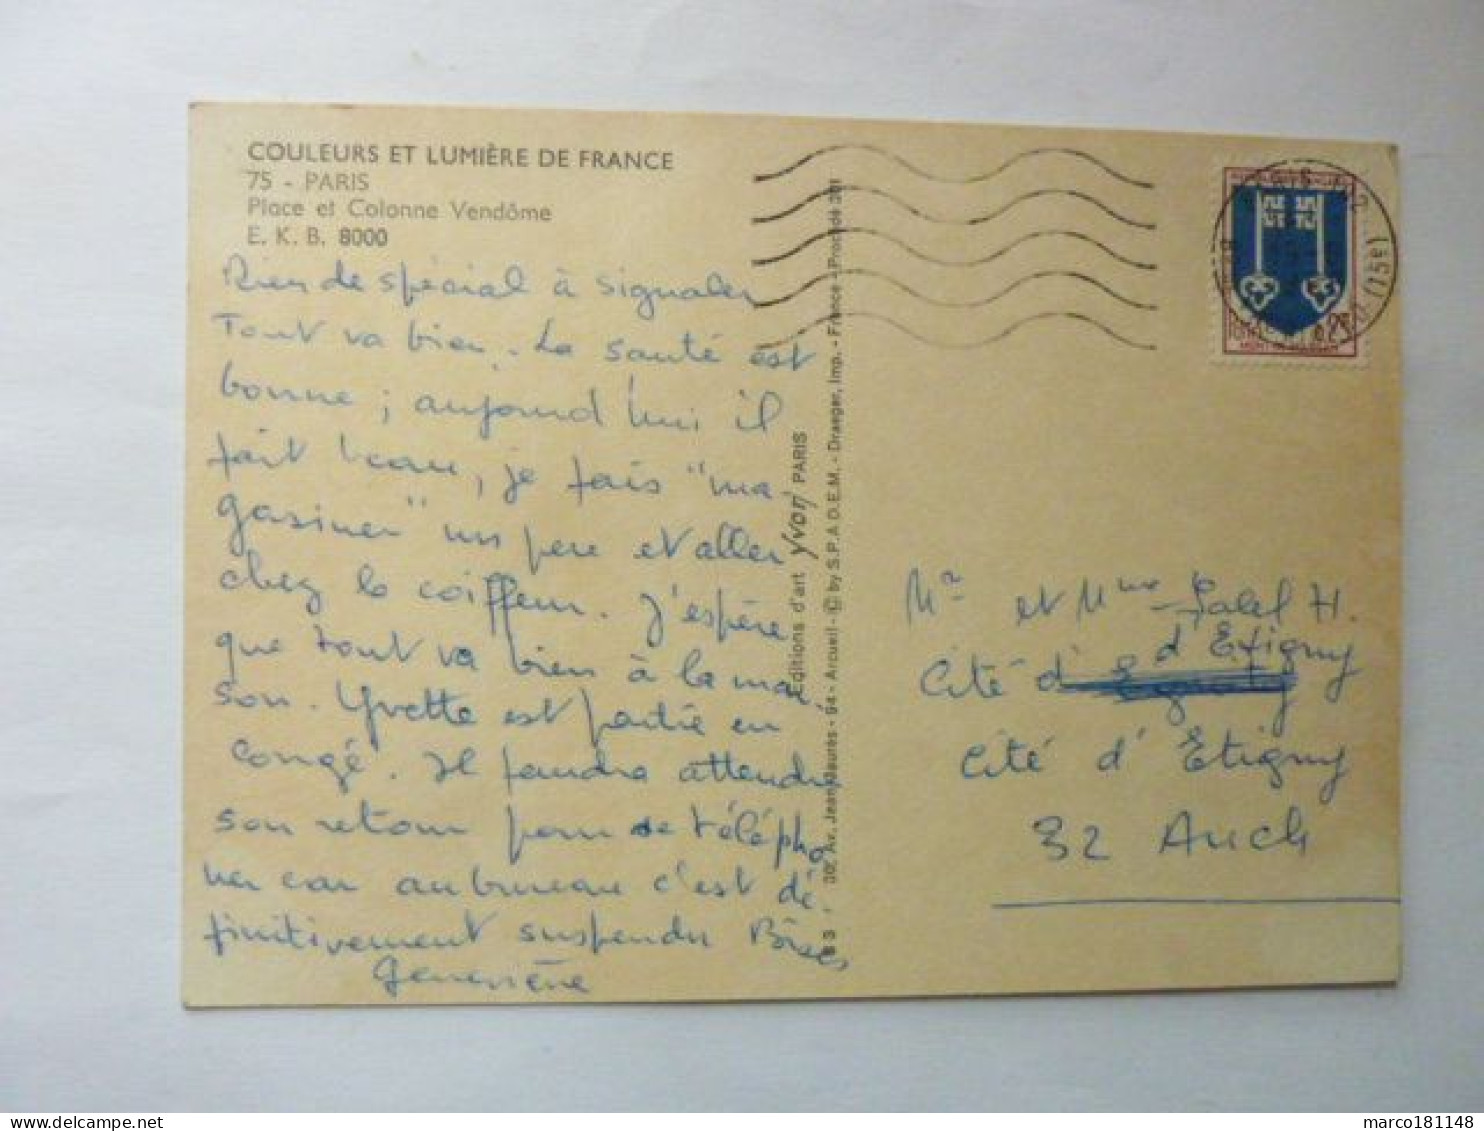 COULEURS ET LUMIÈRE DE FRANCE
75 - PARIS
Place et Colonne Vendôme
E. K. B. 8000
Rien de spécial à signaler
Tout va bien. La santé est
bonne ; aujourd'hui il
fait beau, je fais "ma-
gasiner" un peu et aller
chez le coiffeur. J'espère
que tout va bien à la mai
son. Yvette est partie en
congé. Il faudra attendre
son retour pour te télépho
ner car au bureau c'est dé
finitivement suspendu Bises
Geneviève
Editions d'art Yvon PARIS
30, Av. Jean Jaurès - 94 - Arcueil - © by S.P.A.D.E.M. - Draeger, Imp. - France - Procédé 301
Mr et Mme H.
d'Etigny
Cité d'
Cité d'Etigny
32 Auch
(15e)
marco181148